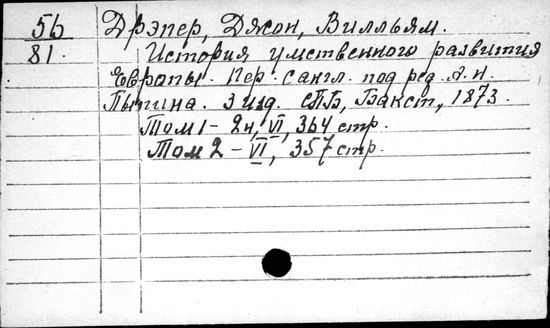 56 Дрэпер, Джон, Вилльям.
81. История умственного развития
Европы. Пер. с англ. под ред. А. Н.
Пыпина. 3 изд. СПБ, Бакст, 1873.
Том 1 - 2н, VI, 364 стр.
Том 2 - VI, 357 стр.